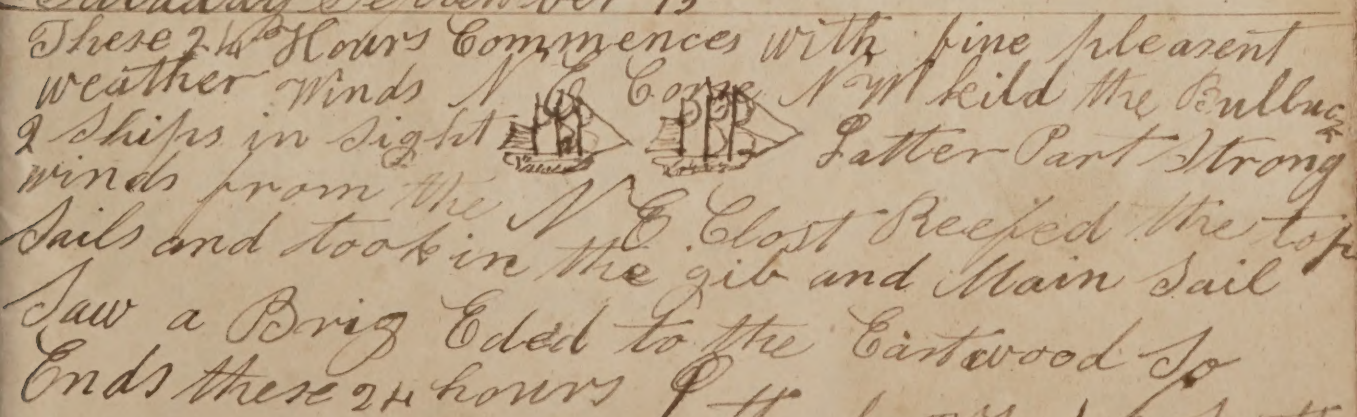 September 13
These 24 Hours Commences with fine pleasent
weather Winds N E Corse N W kild the Bulluck
2 Ships in sight Latter Part Strong
winds from the N E Clost Reefed the top
Sails and took in the gib and Main Sail
Saw a Brig Eded to the Eastwood So
Ends these 24 hours